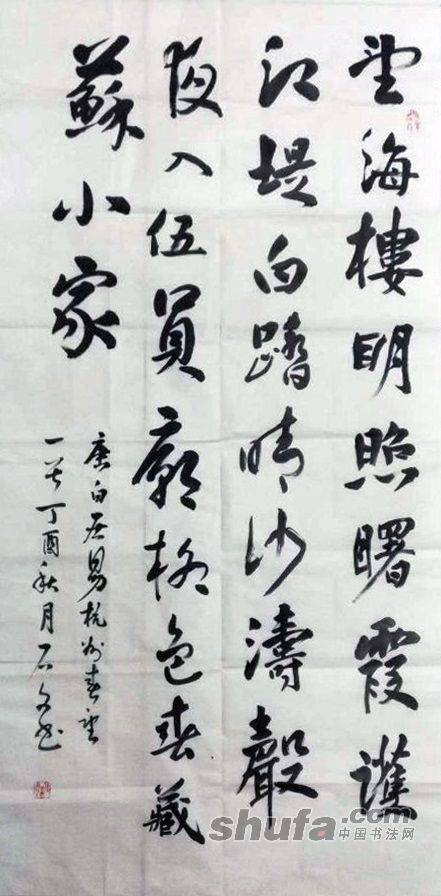 望海樓明照曙霞護
江堤白踏晴沙濤聲
夜入伍員廟柳色春藏
蘇小家
唐白居易杭州春望
一首丁酉秋月石文书
shufa.com
中国书法网